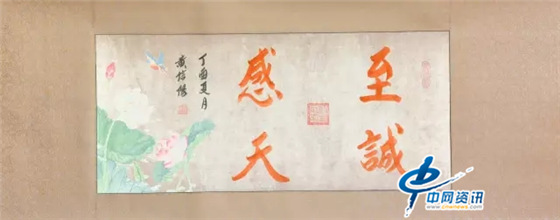 至誠
感天
丁酉夏月
中网资讯
www.cnwnews.com